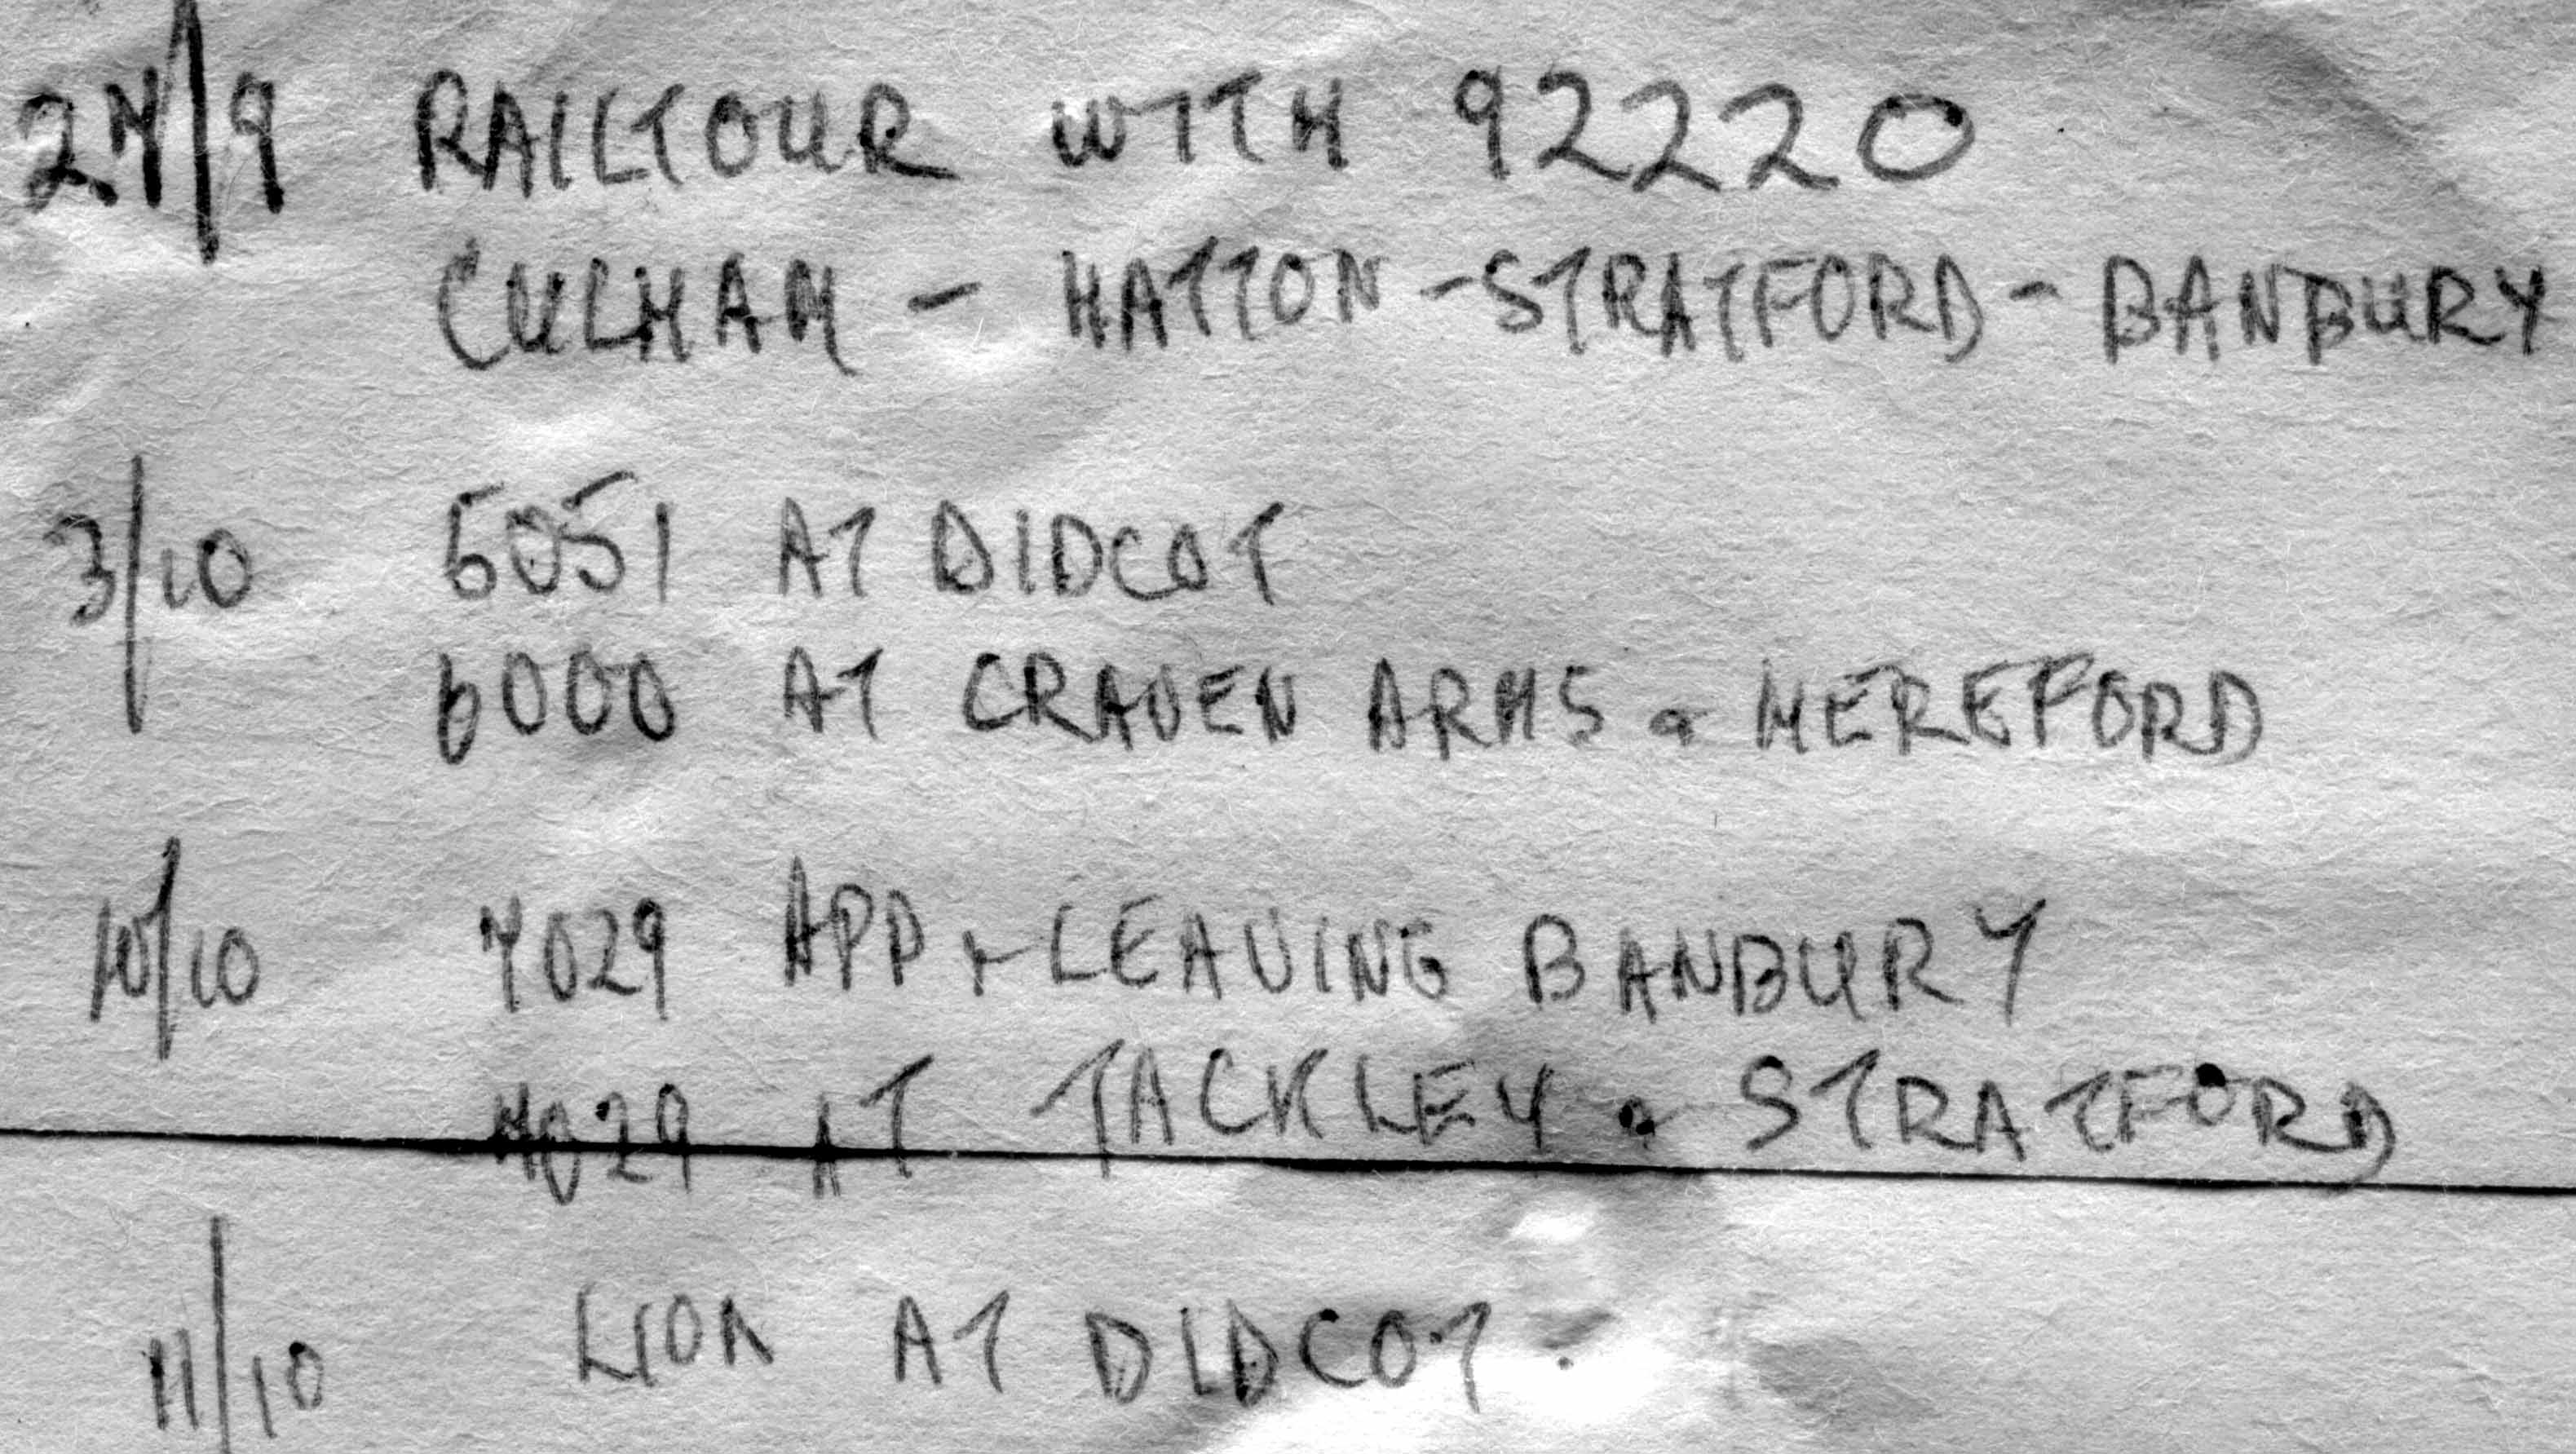 27/9 RAILTOUR WITH 92220
CULHAM - HATTON - STRATFORD - BANBURY
3/10 5051 AT DIDCOT
6000 AT CRAVEN ARMS & HEREFORD
10/10 7029 APP & LEAVING BANBURY
7029 AT TACKLEY & STRATFORD
11/10 LION AT DIDCOT.